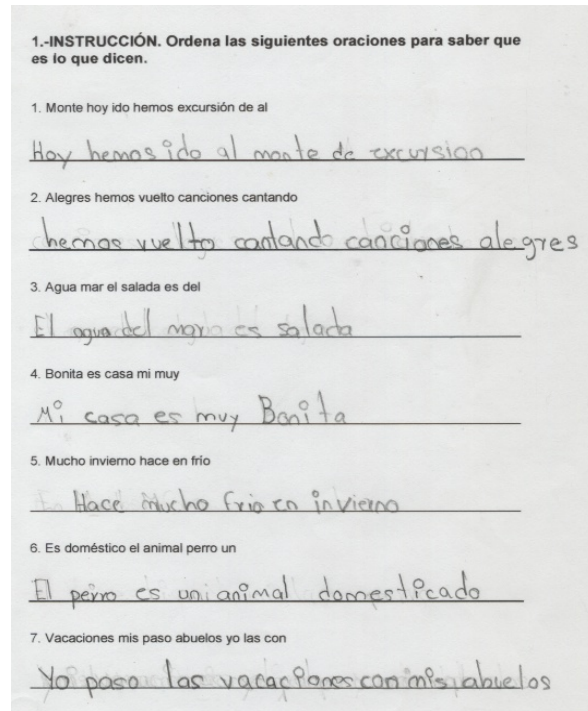 1.-INSTRUCCIÓN. Ordena las siguientes oraciones para saber que
es lo que dicen.
1. Monte hoy ido hemos excursión de al
Hoy hemos ido al monte de excursion
2. Alegres hemos vuelto canciones cantando
hemos vuelto cantando canciones alegres
3. Agua mar el salada es del
El agua del mar es salada
4. Bonita es casa mi muy
Mi casa es muy Bonita
5. Mucho invierno hace en frío
Hace Mucho frio en invierno
6. Es doméstico el animal perro un
El perro es un animal domesticado
7. Vacaciones mis paso abuelos yo las con
Yo paso las vacaciones con mis abuelos